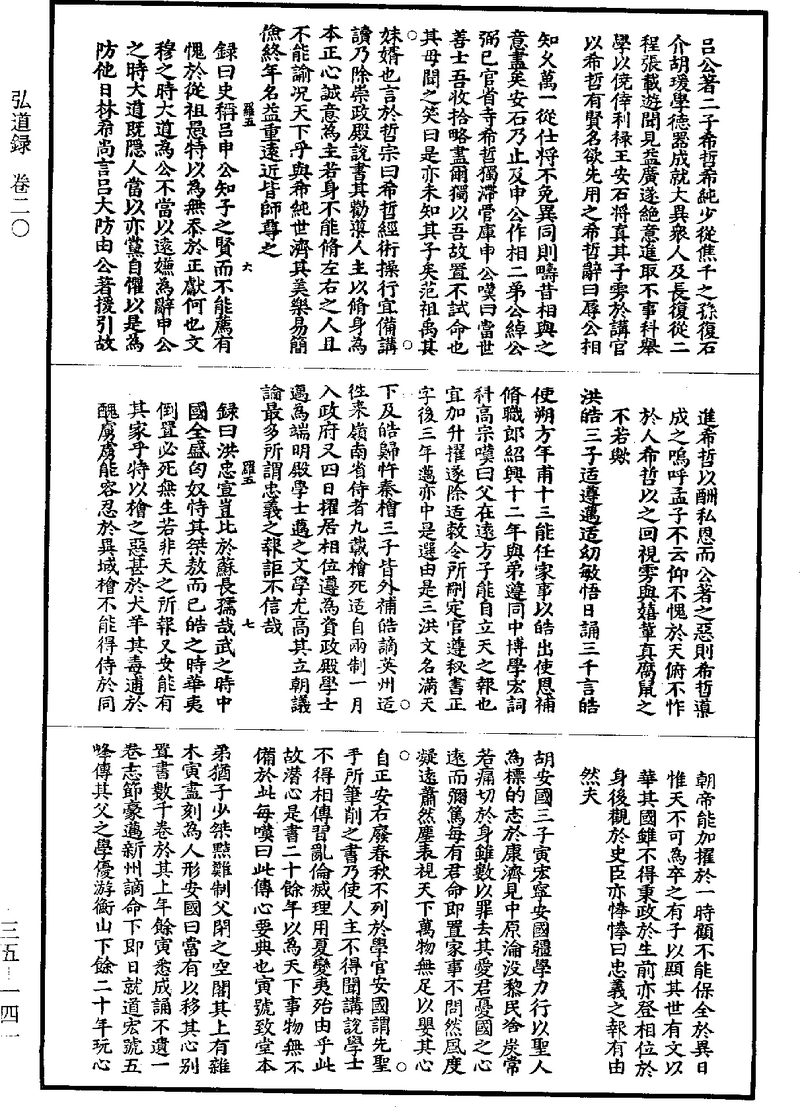 弘道録　卷二〇
呂公著二子希哲希純少從焦千之孫復石
介胡瑗學德器成就大異衆人及長復從二
程張載遊聞見益廣遂絶意進取不事科舉
學以僥倖利祿王安石將寘其子雱於講官
以希哲有賢名欲先用之希哲辭曰辱公相
知久萬一從仕將不免異同則疇昔相與之
意盡矣安石乃止及申公作相二弟公綽公
弼已官省寺希哲獨滯管庫申公嘆曰當世
善士吾收拾略盡爾獨以吾故置不試命也
其母聞之笑曰是亦未知其子矣范祖禹其
妹婿也言於哲宗曰希哲經術操行宜備講
讀乃除崇政殿說書其勸導人主以脩身為
本正心誠意為主若身不能脩左右之人且
不能諭况天下乎與希純世濟其美樂易簡
儉終年名益重遠近皆師尊之
羅五　六
録曰史稱吕申公知子之賢而不能薦有
愧於從祖愚特以為無忝於正獻何也文
穆之時大道為公不當以遠嫌為辭申公
之時大道既隱人當以亦黨自懼以是為
防他日林希尚言吕大防由公著援引故
進希哲以酬私恩而公著之惡則希哲導
成之嗚呼孟子不云仰不愧於天俯不怍
於人希哲以之回視雱與嬉輩真腐鼠之
不若歟
洪皓三子适遵邁适幼敏悟日誦三千言皓
使朔方年甫十三能任家事以皓出使恩補
脩職郎紹興十二年與弟遵同中博學宏詞
科高宗嘆曰父在遠方子能自立天之報也
宜加升擢遂除适敕令所刪定官遵秘書正
字後三年邁亦中是選由是三洪文名滿天
下及皓歸忤秦檜三子皆外補皓謫英州适
徃来嶺南省侍者九載檜死适自兩制一月
入政府又四日擢居相位遵為資政殿學士
邁為端明殿學士邁之文學尤高其立朝議
論最多所謂忠義之報詎不信哉
羅五　七
録曰洪忠宣豈比於蘇長孺哉武之時中
國全盛匈奴恃其桀敖而已皓之時華夷
倒置必死無生若非天之所報又安能有
其家乎特以檜之惡甚於犬羊其毒逋於
醜虜虜能容忍於異域檜不能得侍於同
朝帝能加擢於一時顧不能保全於異日
惟天不可為卒之有子以顯其世有文以
華其國雖不得秉政於生前亦登相位於
身後觀於史臣亦悻悻曰忠義之報有由
然夫
胡安國三子寅宏寧安國彊學力行以聖人
為標的志於康濟見中原淪没黎民塗炭常
若痛切於身雖數以罪去其愛君憂國之心
遠而彌篤每有君命即置家事不問然風度
凝遠蕭然塵表視天下萬物無足以嬰其心
自正安石廢春秋不列於學官安國謂先聖
手所筆削之書乃使人主不得聞講説學士
不得相傳習亂倫滅理用夏變夷殆由乎此
故潜心是書二十餘年以為天下事物無不
備於此每嘆曰此傳心要典也寅號致堂本
弟猶子少桀黠難制父閉之空閣其上有雜
木寅盡刻為人形安國曰當有以移其心别
置書數千卷於其上年餘寅悉成誦不遺一
卷志節豪邁新州謫命下即日就道宏號五
峰傳其父之學優游衡山下餘二十年玩心
三五－一四一